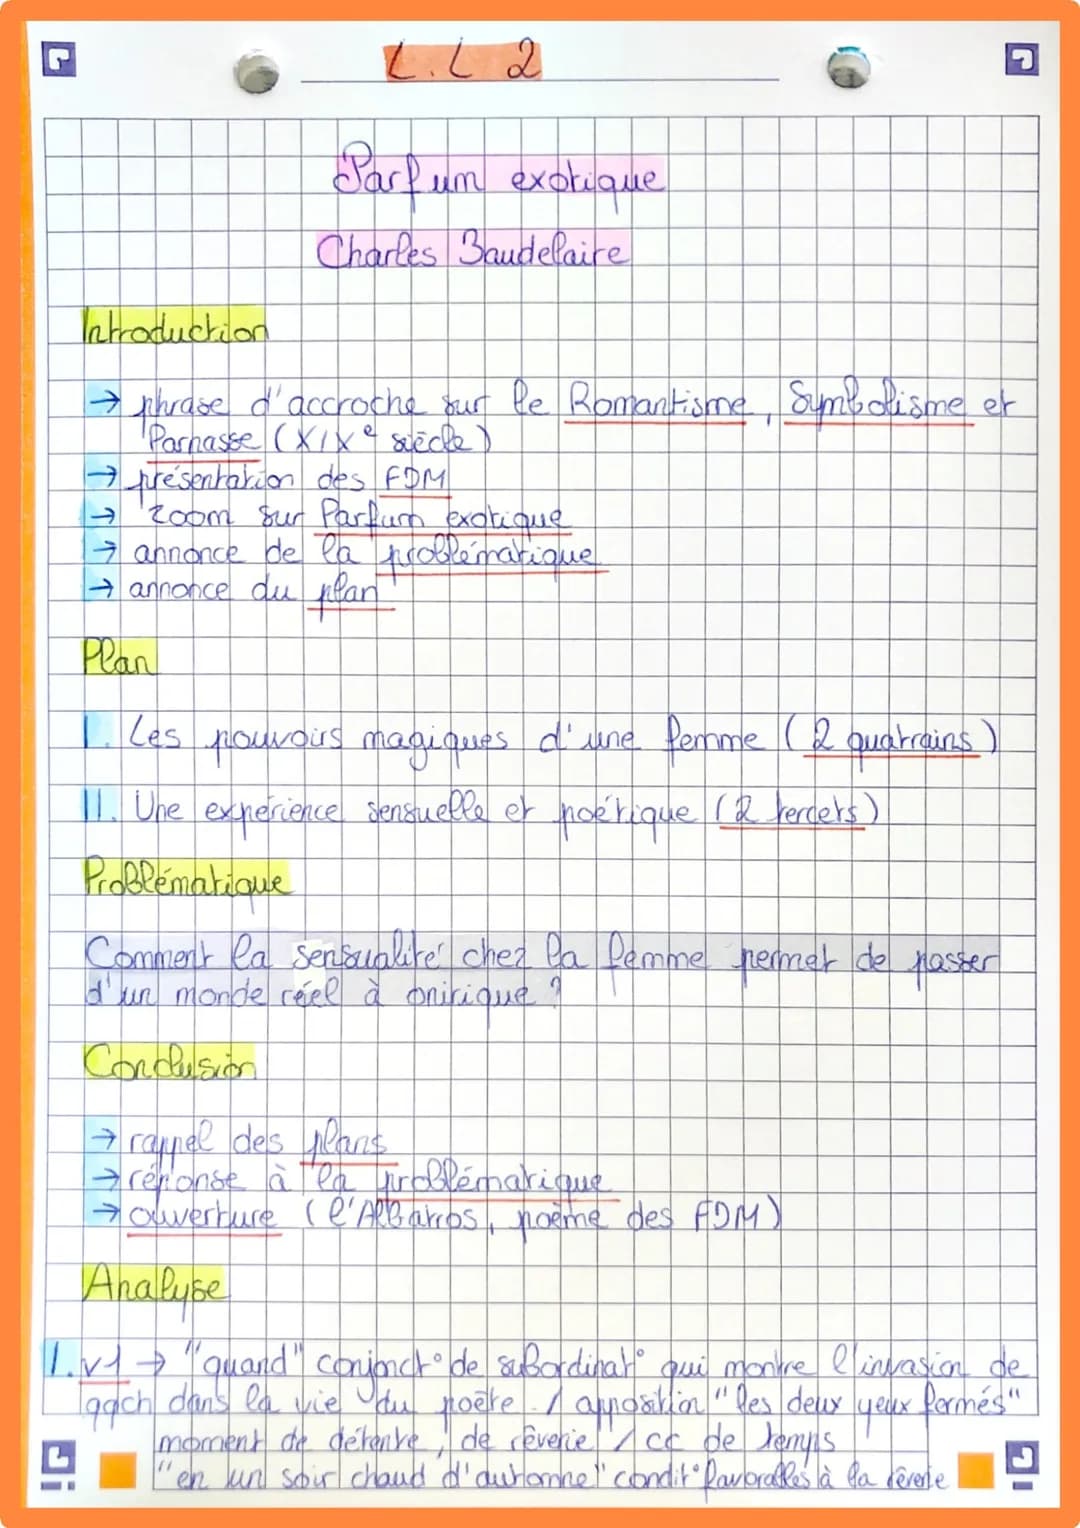 L.L 2
Parfum exotique
Charles Baudelaire
Introduction
→ phrase d'accroche sur le Romantisme, Symbolisme et
Parnasse (XIXe siècle)
→ présentation des FDM
→ zoom sur Parfum exotique
→ annonce de la problématique
→ annonce du plan
Plan
I. Les pouvoirs magiques d'une femme (2 quatrains)
II. Une expérience sensuelle et poétique (2 tercets)
Problématique
Comment la sensualité chez la femme permet de passer
d'un monde réel à onirique ?
Conclusion
→ rappel des plans
→ réponse à la problématique
→ ouverture (l'Albatros, poème des FDM)
Analyse
I. v1 → "quand" conjonct° de subordinat° qui montre l'invasion de
qqch dans la vie du poète / apposition "les deux yeux fermés"
moment de détente, de rêverie / cc de temps
"en un soir chaud d'automne" condit° favorables à la rêverie